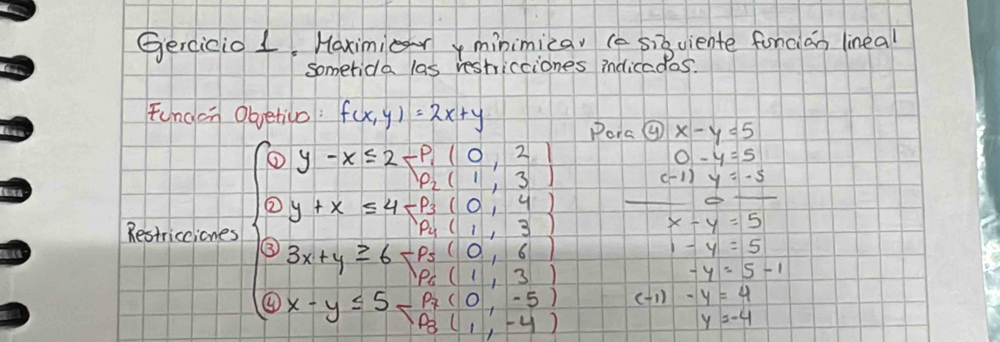 Ejercicio 1. Maximizar y minimizar la siguiente función lineal
sometida las restricciones indicadas.
Función Objetivo: f(x,y) = 2x+y
Restricciones
① y - x ≤ 2 P1 (0, 2)
P2 (1, 3)
② y + x ≤ 4 P3 (0, 4)
P4 (1, 3)
③ 3x+y ≥ 6 P5 (0, 6)
P6 (1, 3)
④ x - y ≤ 5 P7 (0, -5)
P8 (1, -4)
Para ④ x - y = 5
0 - y = 5
(-1) y = -5
x - y = 5
1 - y = 5
-y = 5 - 1
(-1) -y = 4
y = -4